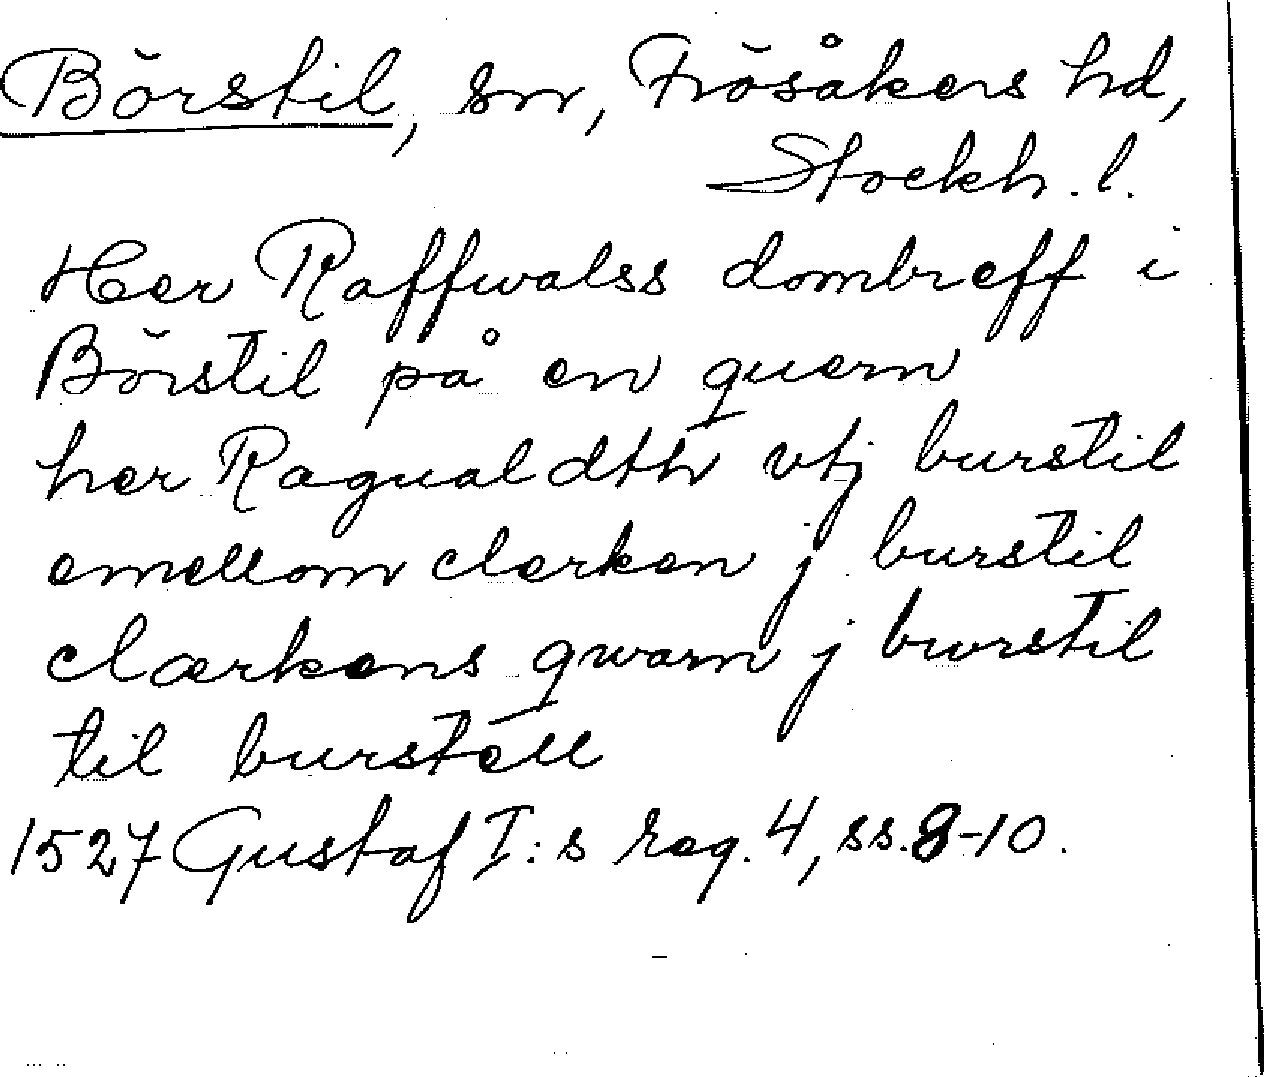 Börstil, sn, Frösåkers hd,
Stockh. l.
Her Raffwalss dombreff i
Börstil på en quern
her Ragualdth vtj burstil
emellom clerken j burstil
clærkens qwarn j bwrstil
til burstell
1527 Gustaf I:s reg. 4, ss. 8-10.